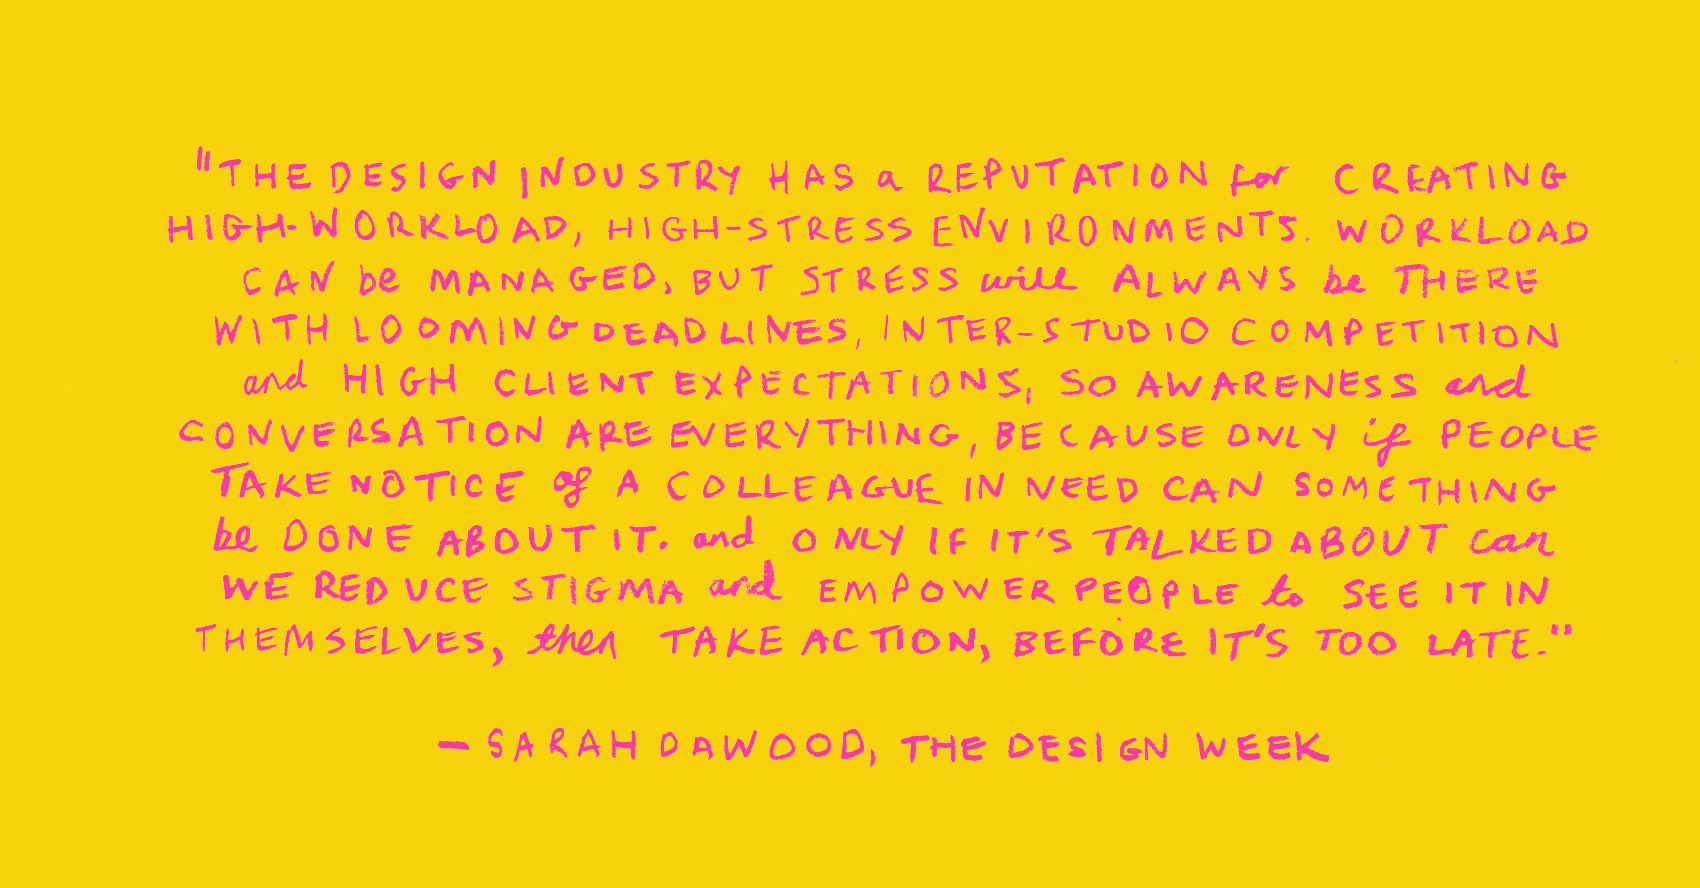 "THE DESIGN INDUSTRY HAS a REPUTATION for CREATING
HIGH-WORKLOAD, HIGH-STRESS ENVIRONMENTS. WORKLOAD
CAN be MANAGED, BUT STRESS will ALWAYS be THERE
WITH LOOMING DEADLINES, INTER-STUDIO COMPETITION
and HIGH CLIENT EXPECTATIONS, SO AWARENESS and
CONVERSATION ARE EVERYTHING, BECAUSE ONLY if PEOPLE
TAKE NOTICE of A COLLEAGUE IN NEED CAN SOMETHING
be DONE ABOUT IT. and ONLY IF IT'S TALKED ABOUT can
WE REDUCE STIGMA and EMPOWER PEOPLE to SEE IT IN
THEMSELVES, then TAKE ACTION, BEFORE IT'S TOO LATE."
— SARAH DAWOOD, THE DESIGN WEEK